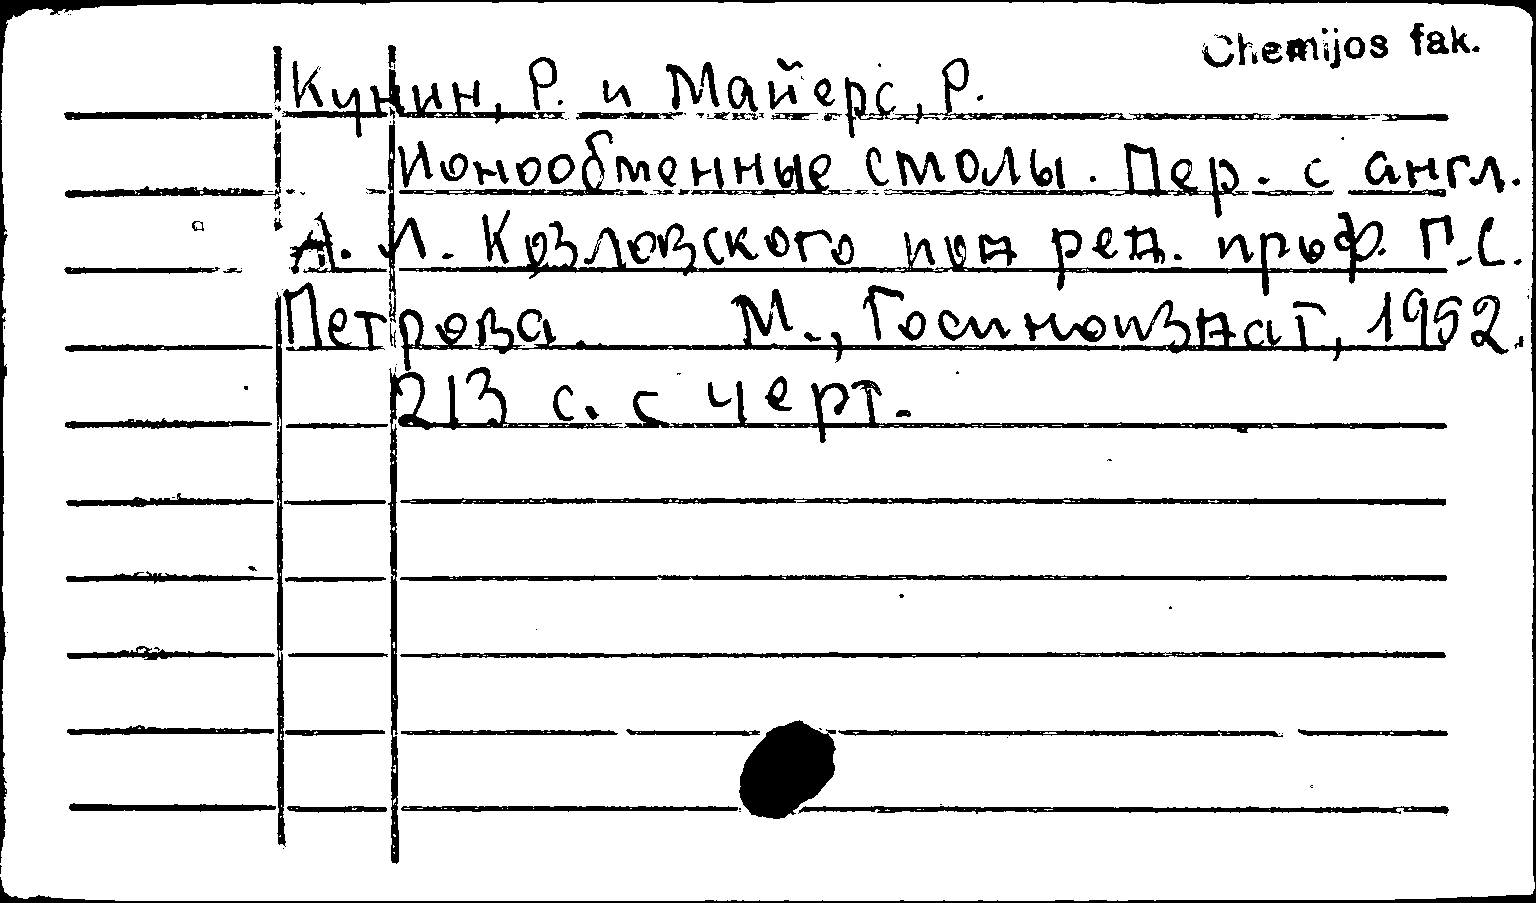 Chemijos fak.
Кунин, Р. и Майерс, Р.
Ионообменные смолы. Пер. с англ.
А. Л. Козловского под ред. проф. Г.С.
Петрова. М., Госиноиздат, 1952.
213 с. с черт.